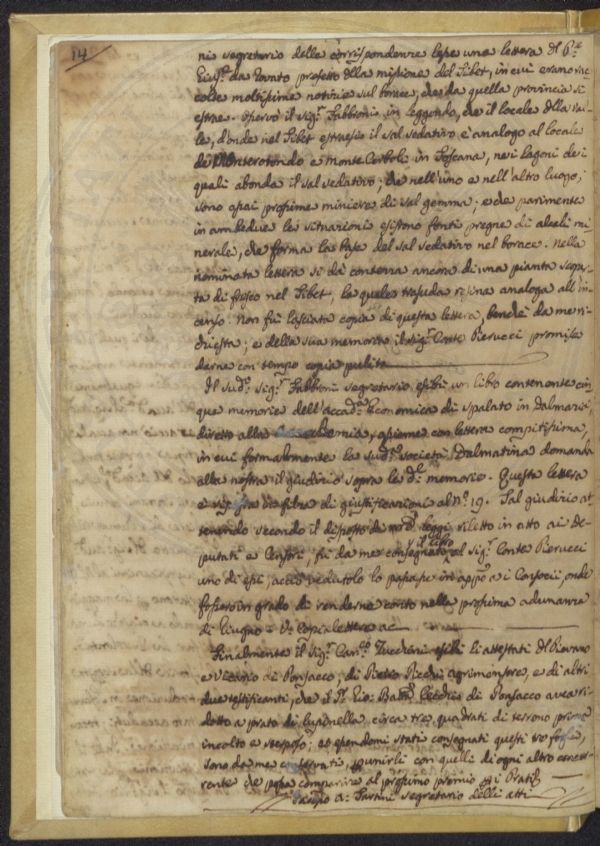 14
ni segretario delle corrispondenze lesse una lettera del P.re
da Lovato prefetto della missione del Tibet, in cui erano rac-
colte moltissime notizie sul borace, che da quella provincia si
estrae. Osservò il Sig.r Fabbroni in leggendo, che il locale della val-
le, d'onde nel Tibet estraesi il sal sedativo è analogo al locale
di Monterotondo e Monte Cerboli in Toscana, nei lagoni dei
quali abonda il sal sedativo; che nell'uno e nell'altro luogo,
sono assai prossime miniere di sal gemma; e che parimente
in ambedue le situazioni esistono fonti pregne di alcali mi-
nerale, che forma la base del sal sedativo nel borace. Nella
nominata lettera si dà contezza ancora di una pianta scoper-
ta di fresco nel Tibet, la quale trasuda resina analoga all'in-
censo. Non fù lasciata copia di questa lettera, benchè da me ri-
chiesta; e della sua memoria il Sig.r Conte Pierucci promise
darne con tempo copia pulita
Il Sud.o Sig.r Fabbroni segretario esibì un libro contenente cin-
que memorie dell'accad.a Economica di Spalato in Dalmazia,
diretto alla accademia, assieme con lettera compitissima,
in cui formalmente la sud.a società Dalmatina domanda
alla nostra il giudizio sopra le d.e memorie. Questa lettera
è in filza di giustificazioni al N.o 19. Tal giudizio at-
tenendo secondo il disposto de leggi riletto in atto ai de-
putati e Censori, fù da me consegnato il libro al Sig.r Conte Pierucci
uno di essi, acciò vedutolo lo passasse in app.o a i Consocii, onde
fossero in grado di renderne conto nella prossima adunanza
di Giugno = V. Copialettere ac
Finalmente il Sig.r Can.co Zucchini esibì li attestati del Pievano
e Vicario di Ponsacco, di Pietro agrimensore, e di altri
due testificanti, che il S.r Gio: Batta di Ponsacco avea ri-
dotto a prato di lupinella circa tre quadrati di terreno prima
incolto e sterposo; ed essendomi stati consegnati questi tre fogli,
sono da me conservati, unirli con quelli di ogni altro concor-
rente che possa comparire al prossimo premio
Tartini segretario delli atti